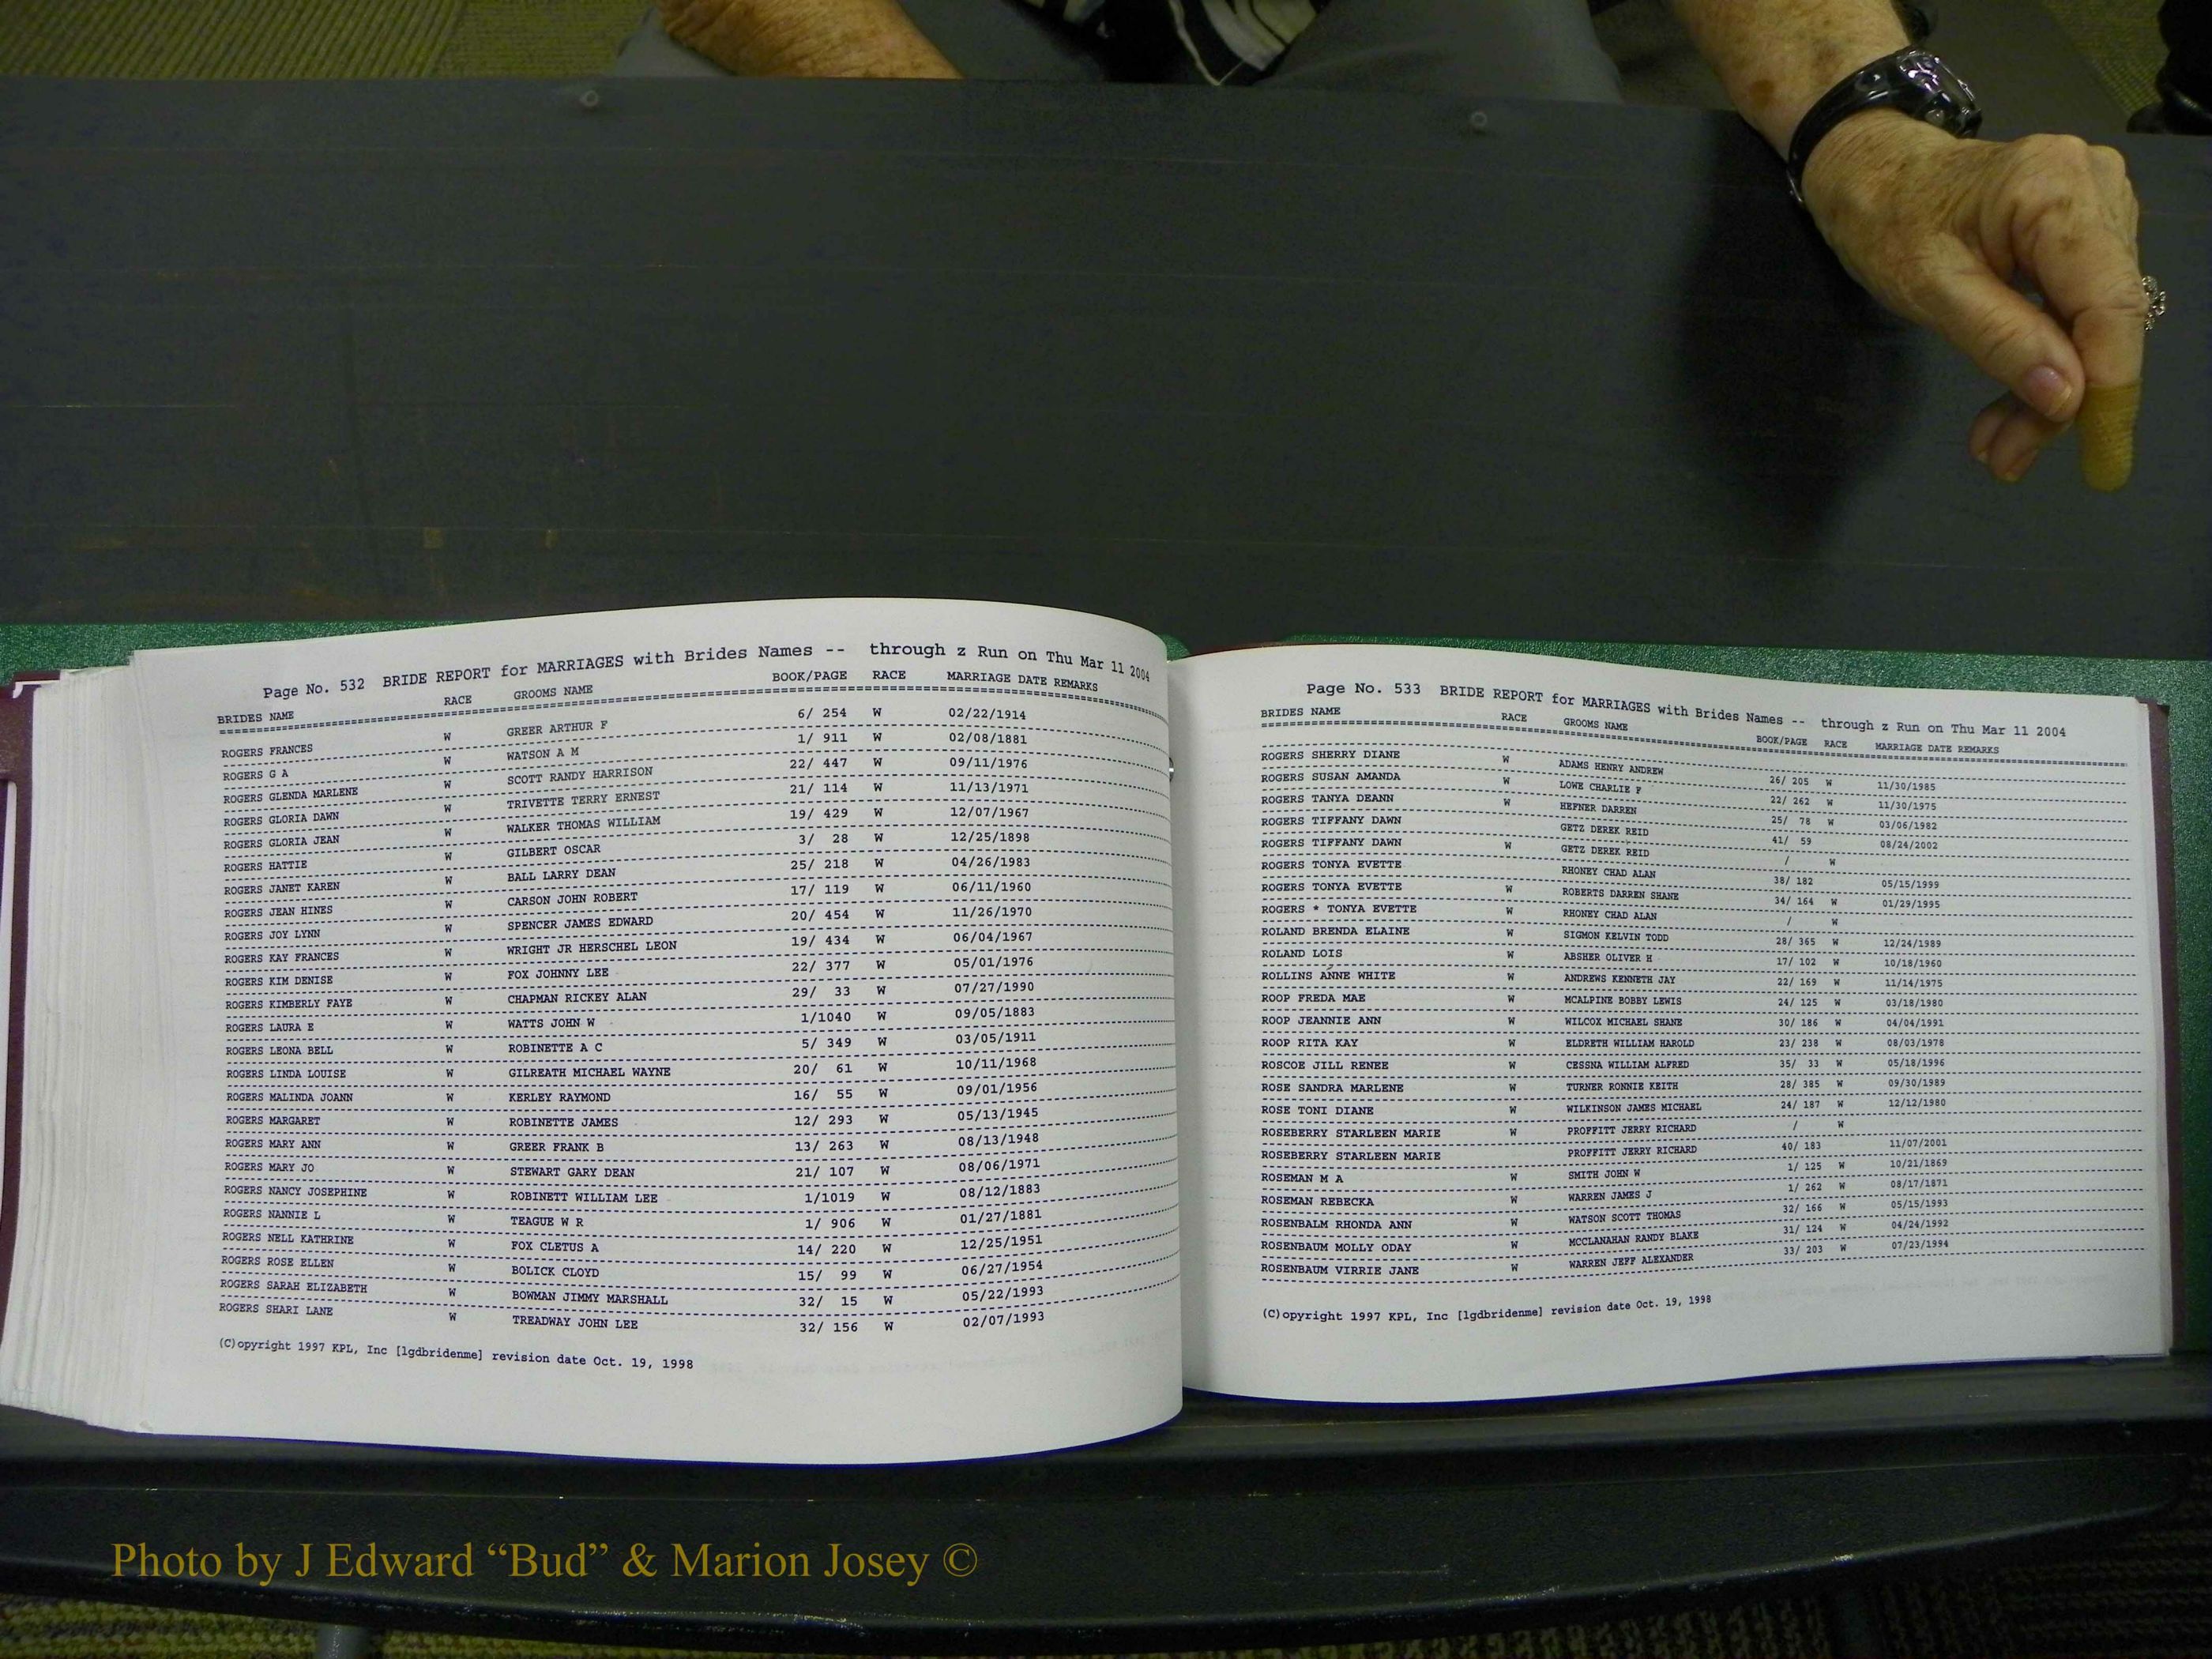 Page No. 532 BRIDE REPORT for MARRIAGES with Brides Names -- through z Run on Thu Mar 11 2004
BRIDES NAME RACE GROOMS NAME BOOK/PAGE RACE MARRIAGE DATE REMARKS
ROGERS FRANCES W GREER ARTHUR F 6/ 254 W 02/22/1914
ROGERS G A W WATSON A M 1/ 911 W 02/08/1881
ROGERS GLENDA MARLENE W SCOTT RANDY HARRISON 22/ 447 W 09/11/1976
ROGERS GLORIA DAWN W TRIVETTE TERRY ERNEST 21/ 114 W 11/13/1971
ROGERS GLORIA JEAN W WALKER THOMAS WILLIAM 19/ 429 W 12/07/1967
ROGERS HATTIE W GILBERT OSCAR 3/ 28 W 12/25/1898
ROGERS JANET KAREN W BALL LARRY DEAN 25/ 218 W 04/26/1983
ROGERS JEAN HINES W CARSON JOHN ROBERT 17/ 119 W 06/11/1960
ROGERS JOY LYNN W SPENCER JAMES EDWARD 20/ 454 W 11/26/1970
ROGERS KAY FRANCES W WRIGHT JR HERSCHEL LEON 19/ 434 W 06/04/1967
ROGERS KIM DENISE W FOX JOHNNY LEE 22/ 377 W 05/01/1976
ROGERS KIMBERLY FAYE W CHAPMAN RICKEY ALAN 29/ 33 W 07/27/1990
ROGERS LAURA E W WATTS JOHN W 1/1040 W 09/05/1883
ROGERS LEONA BELL W ROBINETTE A C 5/ 349 W 03/05/1911
ROGERS LINDA LOUISE W GILREATH MICHAEL WAYNE 20/ 61 W 10/11/1968
ROGERS MALINDA JOANN W KERLEY RAYMOND 16/ 55 W 09/01/1956
ROGERS MARGARET W ROBINETTE JAMES 12/ 293 W 05/13/1945
ROGERS MARY ANN W GREER FRANK B 13/ 263 W 08/13/1948
ROGERS MARY JO W STEWART GARY DEAN 21/ 107 W 08/06/1971
ROGERS NANCY JOSEPHINE W ROBINETT WILLIAM LEE 1/1019 W 08/12/1883
ROGERS NANNIE L W TEAGUE W R 1/ 906 W 01/27/1881
ROGERS NELL KATHRINE W FOX CLETUS A 14/ 220 W 12/25/1951
ROGERS ROSE ELLEN W BOLICK CLOYD 15/ 99 W 06/27/1954
ROGERS SARAH ELIZABETH W BOWMAN JIMMY MARSHALL 32/ 15 W 05/22/1993
ROGERS SHARI LANE W TREADWAY JOHN LEE 32/ 156 W 02/07/1993
(C)opyright 1997 KPL, Inc [lgdbridenme] revision date Oct. 19, 1998
Page No. 533 BRIDE REPORT for MARRIAGES with Brides Names -- through z Run on Thu Mar 11 2004
BRIDES NAME RACE GROOMS NAME BOOK/PAGE RACE MARRIAGE DATE REMARKS
ROGERS SHERRY DIANE W ADAMS HENRY ANDREW 26/ 205 W 11/30/1985
ROGERS SUSAN AMANDA W LOWE CHARLIE F 22/ 262 W 11/30/1975
ROGERS TANYA DEANN W HEFNER DARREN 25/ 78 W 03/06/1982
ROGERS TIFFANY DAWN GETZ DEREK REID 41/ 59 08/24/2002
ROGERS TIFFANY DAWN W GETZ DEREK REID / W
ROGERS TONYA EVETTE RHONEY CHAD ALAN 38/ 182 05/15/1999
ROGERS TONYA EVETTE W ROBERTS DARREN SHANE 34/ 164 W 01/29/1995
ROGERS * TONYA EVETTE W RHONEY CHAD ALAN / W
ROLAND BRENDA ELAINE W SIGMON KELVIN TODD 28/ 365 W 12/24/1989
ROLAND LOIS W ABSHER OLIVER H 17/ 102 W 10/18/1960
ROLLINS ANNE WHITE W ANDREWS KENNETH JAY 22/ 169 W 11/14/1975
ROOP FREDA MAE W MCALPINE BOBBY LEWIS 24/ 125 W 03/18/1980
ROOP JEANNIE ANN W WILCOX MICHAEL SHANE 30/ 186 W 04/04/1991
ROOP RITA KAY W ELDRETH WILLIAM HAROLD 23/ 238 W 08/03/1978
ROSCOE JILL RENEE W CESSNA WILLIAM ALFRED 35/ 33 W 05/18/1996
ROSE SANDRA MARLENE W TURNER RONNIE KEITH 28/ 385 W 09/30/1989
ROSE TONI DIANE W WILKINSON JAMES MICHAEL 24/ 187 W 12/12/1980
ROSEBERRY STARLEEN MARIE W PROFFITT JERRY RICHARD / W
ROSEBERRY STARLEEN MARIE PROFFITT JERRY RICHARD 40/ 183 11/07/2001
ROSEMAN M A W SMITH JOHN W 1/ 125 W 10/21/1869
ROSEMAN REBECKA W WARREN JAMES J 1/ 262 W 08/17/1871
ROSENBALM RHONDA ANN W WATSON SCOTT THOMAS 32/ 166 W 05/15/1993
ROSENBAUM MOLLY ODAY W MCCLANAHAN RANDY BLAKE 31/ 124 W 04/24/1992
ROSENBAUM VIRRIE JANE W WARREN JEFF ALEXANDER 33/ 203 W 07/23/1994
(C)opyright 1997 KPL, Inc [lgdbridenme] revision date Oct. 19, 1998
Photo by J Edward “Bud” & Marion Josey ©